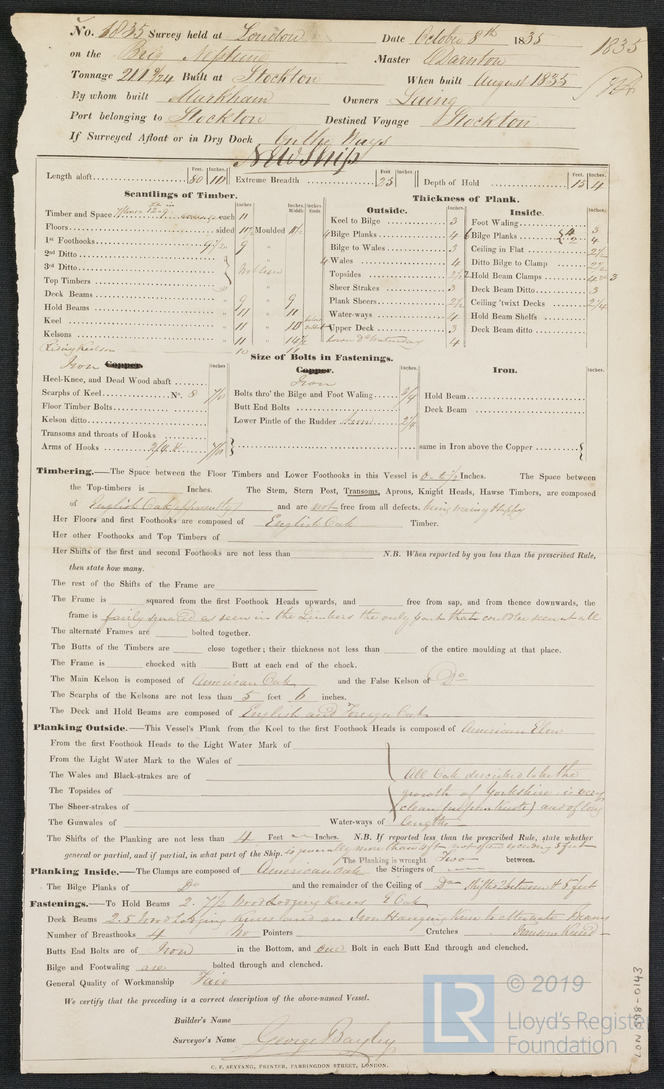 No. 6835 Survey held at London Date October 8th 1835
1835
on the Brig Neptune Master
Tonnage 211 Built at Stockton When built August 1835
By whom built Markham Owners Laing
Port belonging to Stockton Destined Voyage Stockton
If Surveyed Afloat or in Dry Dock On the Ways
New Ship
Length aloft Feet. 80 Inches. 10 Extreme Breadth Feet. 25 Inches. Depth of Hold Feet. 15 Inches. 4
Scantlings of Timber. Thickness of Plank.
Outside. Inside.
Timber and Space each 11
Floors sided 11 Moulded
1st Foothooks 9
2nd Ditto
3rd Ditto
Top Timbers
Deck Beams
Hold Beams 9 9
Keel 11 11
Kelsons 11
Rising Keelson 10 11
Keel to Bilge 3
Bilge Planks 4
Bilge to Wales 3
Wales 4
Topsides
Sheer Strakes 3
Plank Sheers 2½
Water-ways 4
Upper Deck 3
Foot Waling 3
Bilge Planks 4
Ceiling in Flat 2½
Ditto Bilge to Clamp
Hold Beam Clamps
Deck Beam Ditto 3
Ceiling 'twixt Decks
Hold Beam Shelfs
Deck Beam ditto
Size of Bolts in Fastenings.
Iron Copper Copper. Iron Iron.
Heel-Knee, and Dead Wood abaft
Scarphs of Keel No. 8 7/8
Floor Timber Bolts
Kelson ditto
Transoms and throats of Hooks
Arms of Hooks
Bolts thro' the Bilge and Foot Waling 3/4
Butt End Bolts
Lower Pintle of the Rudder
Hold Beam
Deck Beam
same in Iron above the Copper
Timbering.—The Space between the Floor Timbers and Lower Foothooks in this Vessel is Inches. The Space between
the Top-timbers is Inches. The Stem, Stern Post, Transoms, Aprons, Knight Heads, Hawse Timbers, are composed
of English Oak apparently and are not free from all defects.
Her Floors and first Foothooks are composed of English Oak Timber.
Her other Foothooks and Top Timbers of
Her Shifts of the first and second Foothooks are not less than N.B. When reported by you less than the prescribed Rule,
then state how many.
The rest of the Shifts of the Frame are
The Frame is squared from the first Foothook Heads upwards, and free from sap, and from thence downwards, the
frame is fairly squared as seen in the Limbers the only part that could be seen at all
The alternate Frames are bolted together.
The Butts of the Timbers are close together; their thickness not less than of the entire moulding at that place.
The Frame is chocked with Butt at each end of the chock.
The Main Kelson is composed of American Oak and the False Kelson of Do
The Scarphs of the Kelsons are not less than 5 feet 6 inches.
The Deck and Hold Beams are composed of English and Foreign Oak
Planking Outside.—This Vessel's Plank from the Keel to the first Foothook Heads is composed of American Elm
From the first Foothook Heads to the Light Water Mark of
From the Light Water Mark to the Wales of
The Wales and Black-strakes are of
The Topsides of
The Sheer-strakes of
The Gunwales of Water-ways of
All Oak described to be the
growth of Yorkshire is very
clean and of long
lengths
The Shifts of the Planking are not less than 4 Feet Inches. N.B. If reported less than the prescribed Rule, state whether
general or partial, and if partial, in what part of the Ship.
The Planking is wrought Two between.
Planking Inside.—The Clamps are composed of American Oak the Stringers of
The Bilge Planks of Do and the remainder of the Ceiling of Do Shifts between 4 & 5 feet
Fastenings.—To Hold Beams 2. 7/8 Wood Lodging Knees & Oak
Deck Beams
Number of Breasthooks 4 No Pointers Crutches
Butts End Bolts are of Iron in the Bottom, and one Bolt in each Butt End through and clenched.
Bilge and Footwaling are bolted through and clenched.
General Quality of Workmanship Fair
We certify that the preceding is a correct description of the above-named Vessel.
Builder's Name
Surveyor's Name George Bayley
C. F. SEYFANG, PRINTER, FARRINGDON STREET, LONDON.
LR © 2019
Lloyd's Register
Foundation
LON 598-0143